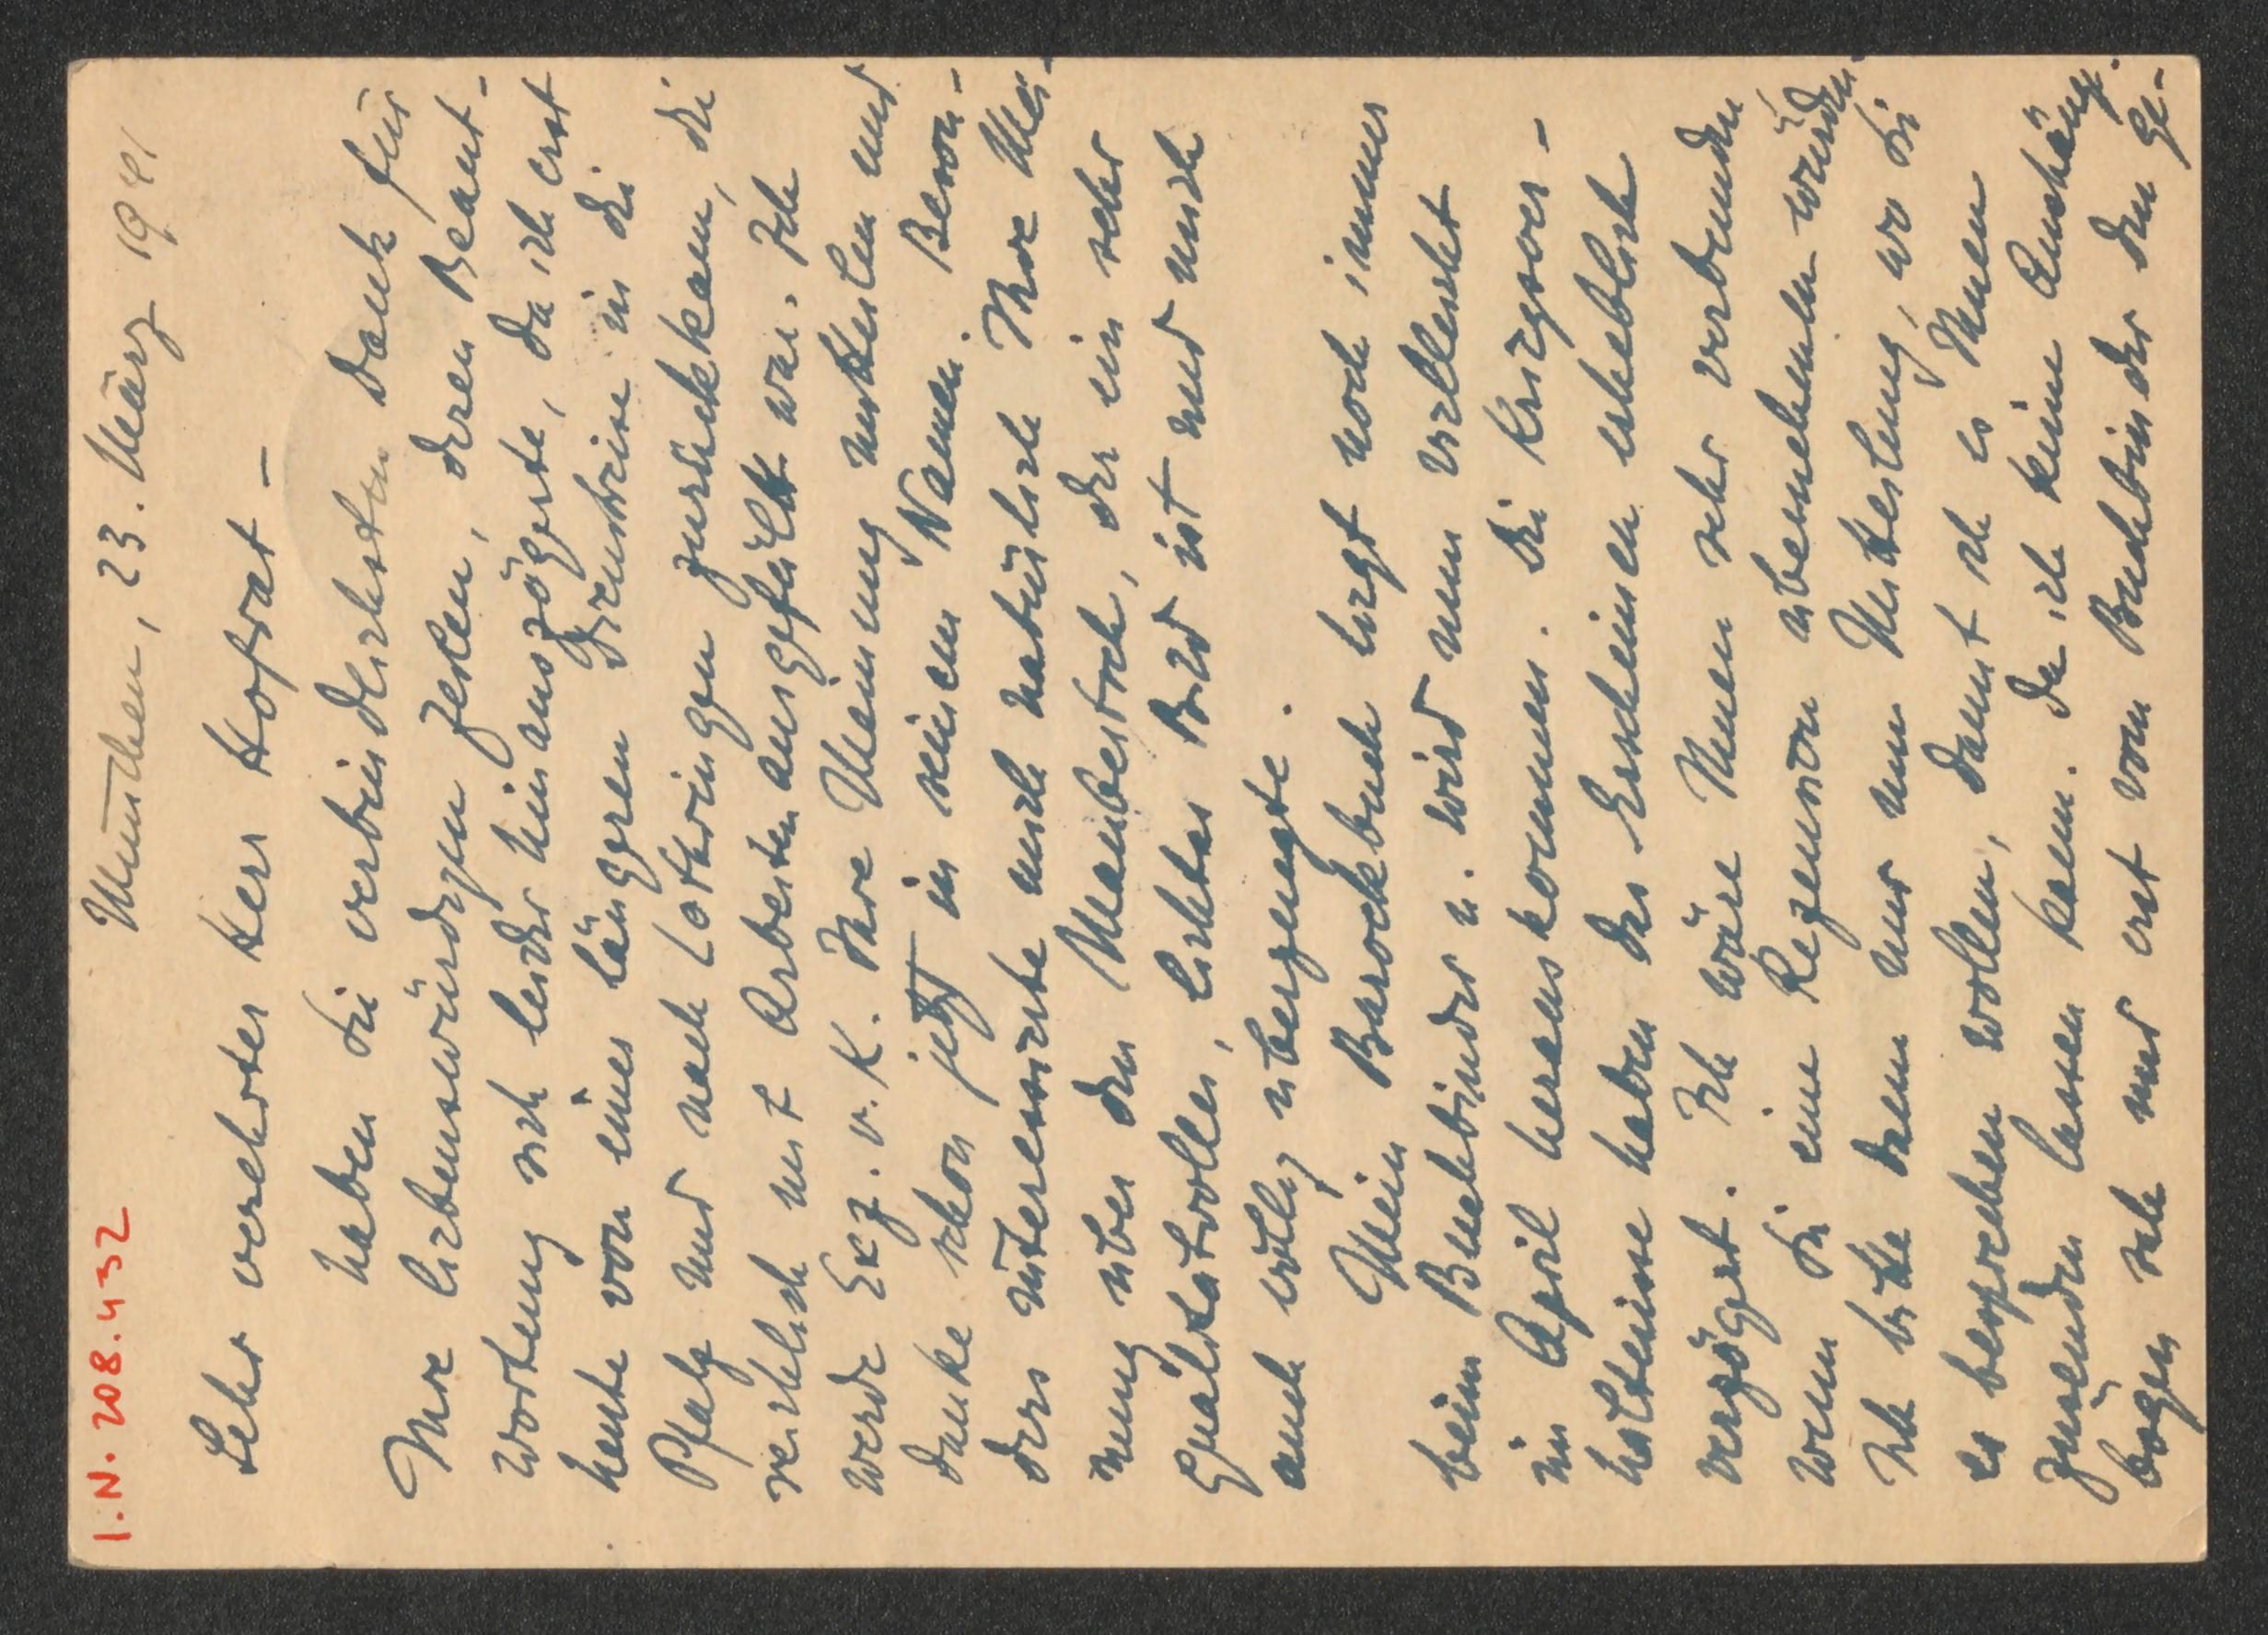 I.N. 208.432
München, 23. März 1941
Sehr verehrter Herr Hofrat –
haben Sie verbindlichsten Dank für
Ihre liebenswürdigen Zeilen, deren Beant-
wortung sich leider hinauszögerte, da ich erst
heute von einer längeren Dienstreise in die
Pfalz und nach Lothringen zurückkam, die
reichlich mit Arbeiten ausgefüllt war. Ich
werde Exz. v. K. Ihre Meinung mitteilen und
danke schon jetzt in seinem Namen. Beson-
ders interessierte mich natürlich Ihre Mei-
nung über den Maulbertsch, der ein sehr
qualitätvolles, echtes Bild ist und mich
auch völlig überzeugte.
Mein Barockbuch liegt noch immer
beim Buchbinder u. wird nun vielleicht
im April herauskommen. Die Kriegsver-
hältnisse haben das Erscheinen erheblich
verzögert. Ich wäre Ihnen sehr verbunden,
wenn Sie eine Rezension übernehmen würden.
Ich bitte dann nur um Mitteilung, wo Sie
es besprechen wollen, damit ich es Ihnen
zusenden lassen kann. Da ich keine Aushänge-
bogen sah und erst vom Buchbinder den Ge-